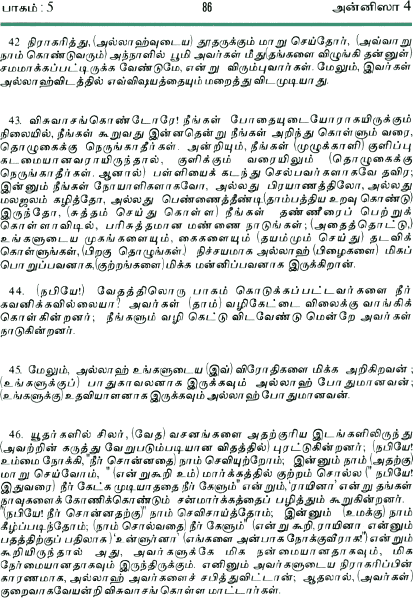 பாகம் : 5 86 அன்னிஸா 4
42 நிராகரித்து, (அல்லாஹ்வுடைய) தூதருக்கும் மாறு செய்தோர், (அவ்வாறு
நாம் கொண்டுவரும்) அந்நாளில் பூமி அவர்கள் மீது(தங்களை விழுங்கி தன்னுள்)
சமமாக்கப்பட்டிருக்க வேண்டுமே, என்று விரும்புவார்கள். மேலும், இவர்கள்
அல்லாஹ்விடத்தில் எவ்விஷயத்தையும் மறைத்து விடமுடியாது.
43. விசுவாசங்கொண்டோரே! நீங்கள் போதையுடையோராகயிருக்கும்
நிலையில், நீங்கள் கூறுவது இன்னதென்று நீங்கள் அறிந்து கொள்ளும் வரை,
தொழுகைக்கு நெருங்காதீர்கள். அன்றியும், நீங்கள் (முழுக்காளி) குளிப்பு
கடமையானவராயிருந்தால், குளிக்கும் வரையிலும் (தொழுகைக்கு
நெருங்காதீர்கள். ஆனால்) பள்ளியைக் கடந்து செல்பவர்களாகவே தவிர;
இன்னும் நீங்கள் நோயாளிகளாகவோ, அல்லது பிரயாணத்திலோ, அல்லது
மலஜலம் கழித்தோ, அல்லது பெண்ணைத்தீண்டி(தாம்பத்திய உறவு கொண்டு)
இருந்தோ, (சுத்தம் செய்து கொள்ள) நீங்கள் தண்ணீரைப் பெற்றுக்
கொள்ளாவிடில், பரிசுத்தமான மண்ணை நாடுங்கள்; (அதைத்தொட்டு,)
உங்களுடைய முகங்களையும், கைகளையும் (தயம்மும் செய்து) தடவிக்
கொள்ளுங்கள், (பிறகு தொழுங்கள்) நிச்சயமாக அல்லாஹ் (பிழைகளை) மிகப்
பொறுப்பவனாக,(குற்றங்களை) மிக்க மன்னிப்பவனாக இருக்கிறான்.
44. (நபியே!) வேதத்திலொரு பாகம் கொடுக்கப்பட்டவர்களை நீர்
கவனிக்கவில்லையா? அவர்கள் (தாம்) வழிகேட்டை விலைக்கு வாங்கிக்
கொள்கின்றனர்; நீங்களும் வழி கெட்டு விடவேண்டு மென்றே அவர்கள்
நாடுகின்றனர்.
45. மேலும், அல்லாஹ் உங்களுடைய (இவ்) விரோதிகளை மிக்க அறிகிறவன் ;
(உங்களுக்குப்) பாதுகாவலனாக இருக்கவும் அல்லாஹ் போதுமானவன் ;
(உங்களுக்கு) உதவியாளனாக இருக்கவும் அல்லாஹ் போதுமானவன்.
46. யூதர்களில் சிலர், (வேத) வசனங்களை அதற்குரிய இடங்களிலிருந்து
(அவற்றின் கருத்து வேறுபடும்படியான விதத்தில்) புரட்டுகின்றனர்; (நபியே!
உம்மை நோக்கி, "நீர் சொன்னதை) நாம் செவியுற்றோம்; இன்னும் நாம் (அதற்கு)
மாறு செய்வோம், " (என்று கூறி உம்) மார்க்கத்தில் குற்றம் சொல்ல ("நபியே!
இதுவரை) நீர் கேட்க முடியாததை நீர் கேளும்" என்றும், 'ராயினா' என்று தங்கள்
நாவுகளைக் கோணிக்கொண்டும் சன்மார்க்கத்தைப் பழித்தும் கூறுகின்றனர்.
"(நபியே! நீர் சொன்னதற்கு)" நாம் செவிசாய்த்தோம்; இன்னும் (உமக்கு) நாம்
கீழ்ப்படிந்தோம்; (நாம் சொல்வதை) நீர் கேளும்" (என்று கூறி, ராயினா என்னும்
பதத்திற்குப் பதிலாக) 'உன்ளுர்னா' (எங்களை அன்பாக நோக்குவீராக!") என்றும்
கூறியிருந்தால் அது, அவர்களுக்கே மிக நன்மையானதாகவும், மிக
நேர்மையானதாகவும் இருந்திருக்கும். எனினும் அவர்களுடைய நிராகரிப்பின்
காரணமாக, அல்லாஹ் அவர்களைச் சபித்துவிட்டான்; ஆதலால், (அவர்கள்)
குறைவாகவேயன்றி விசுவாசங் கொள்ள மாட்டார்கள்.